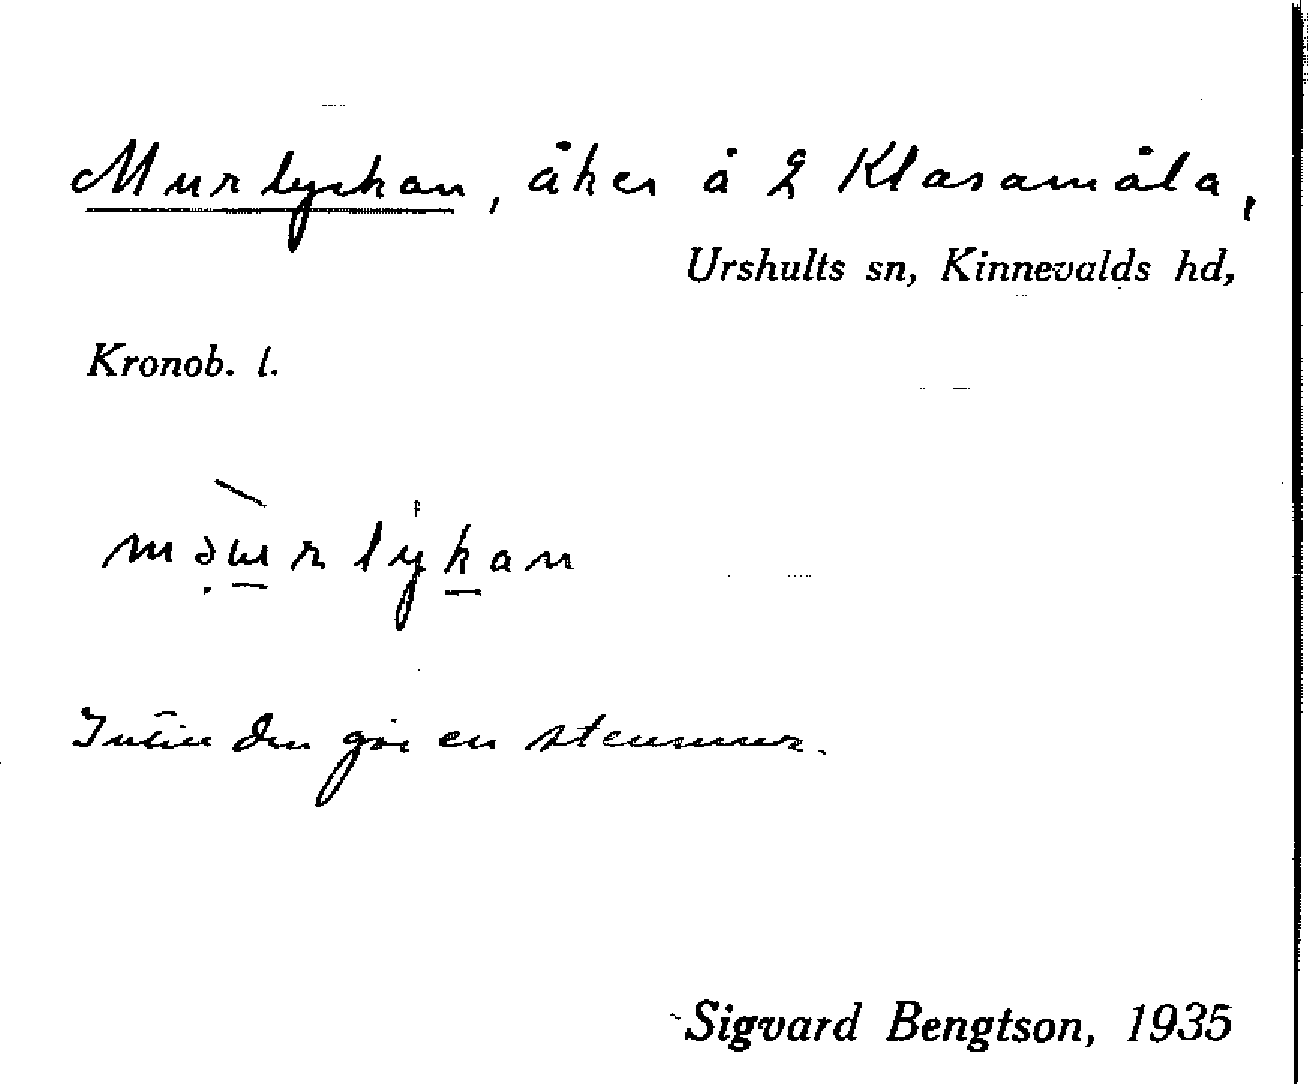 Murlyckan, åker å 2 Klasamåla,
Urshults sn, Kinnevalds hd,
Kronob. l.
məɯrlykan
Intill den går en stenmur.
Sigvard Bengtson, 1935